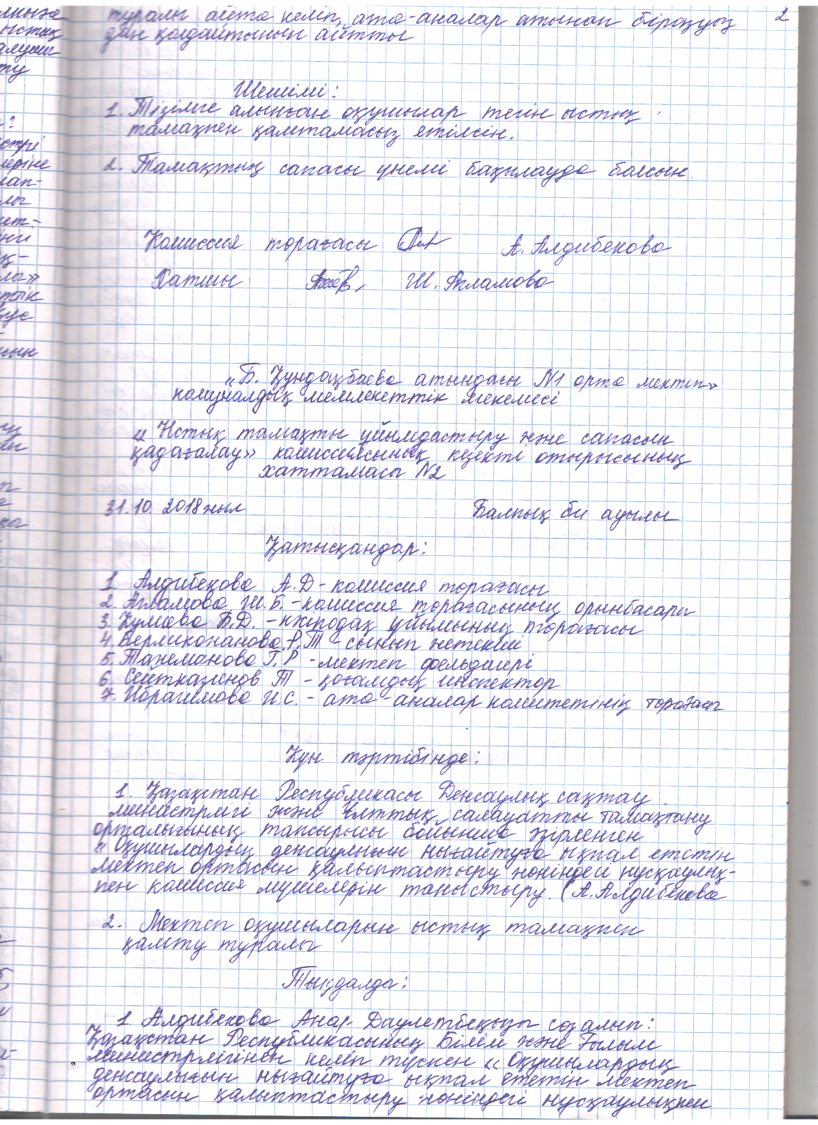 туралы айта келіп, ата-аналар атынан бірауыз 2
дан қолдайтынын айтты
Шешімі:
1. Тізімге алынған оқушылар тегін ыстық
тамақпен қамтамасыз етілсін.
2. Тамақтың сапасы үнемі бақылауда болсын.
Комиссия төрағасы А. Алдибекова
Хатшы Ш. Акламова
„Б. Құндақбаева атындағы N1 орта мектеп»
коммуналдық мемлекеттік мекемесі
„Ыстық тамақты ұйымдастыру және сапасын
қадағалау» комиссиясының кезекті отырысының
хаттамасы N2
31.10.2018 жыл Балпық би ауылы
Қатысқандар:
1 Алдибекова А.Д - комиссия төрағасы
2. Акламова Ш.Б. - комиссия төрағасының орынбасары
3. Кумиева Б.Д. - кәсіподақ ұйымының төрағасы
4. Берликожанова Р.Т - сынып жетекші
5. Тажеманова Г.Р - мектеп фельдшері
6. Сейтказинов Т - қоғамдық инспектор
7. Ибрагимова И.С. - ата-аналар комитетінің төрағасы
Күн тәртібінде:
1. Қазақстан Республикасы Денсаулық сақтау
министрлігі және Ұлттық салауатты тамақтану
орталығының тапсырысы бойынша әзірленген
„Оқушылардың денсаулығын нығайтуға ықпал ететін
мектеп ортасын қалыптастыру жөніндегі нұсқаулық-
пен комиссия мүшелерін таныстыру. (А.Алдибекова
2. Мектеп оқушыларын ыстық тамақпен
қамту туралы
Тыңдалды:
1 Алдибекова Анар Даулетбекқызы сөз алып:
Қазақстан Республикасының Білім және Ғылым
министрлігінен келіп түскен „Оқушылардың
денсаулығын нығайтуға ықпал ететін мектеп
ортасын қалыптастыру жөніндегі нұсқаулықпен